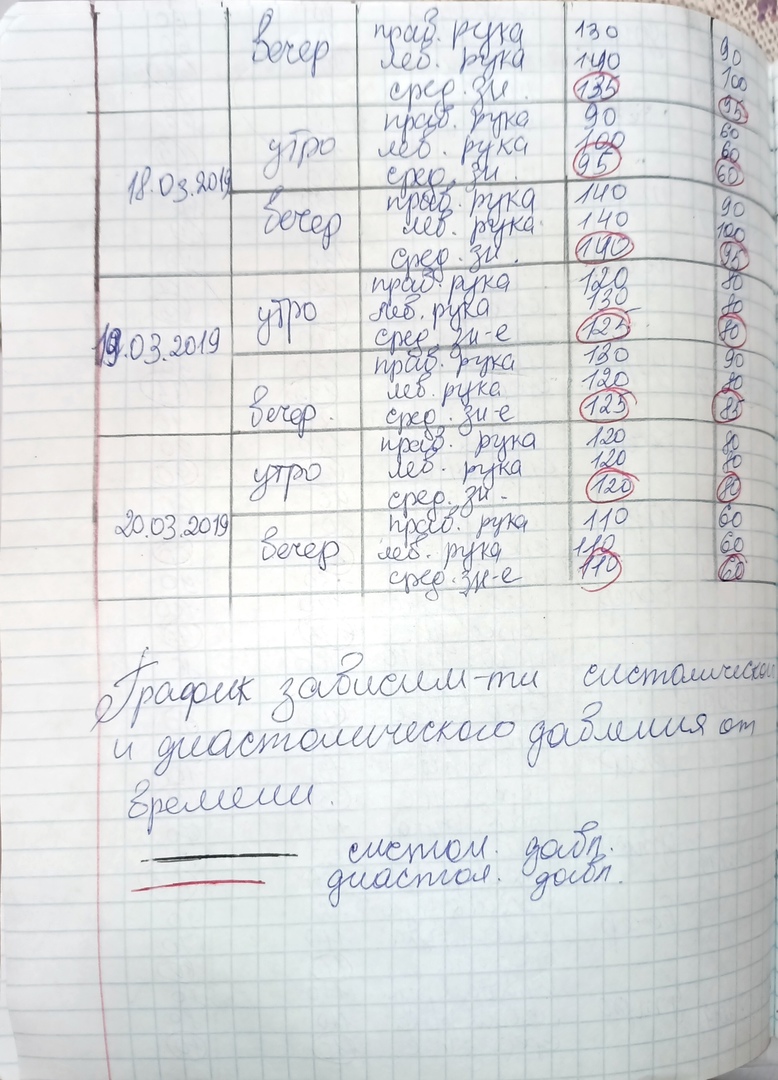 вечер прав. рука 130 90
лев. рука 140 100
сред. зн. 135 95
18.03.2019 утро прав. рука 90 60
лев. рука 100 60
сред. зн. 95 60
вечер прав. рука 140 90
лев. рука 140 100
сред. зн. 140 95
19.03.2019 утро прав. рука 120 80
лев. рука 130 80
сред. зн-е 125 80
вечер. прав. рука 130 90
лев. рука 120 80
сред. зн-е 125 85
20.03.2019 утро прав. рука 120 80
лев. рука 120 80
сред. зн- 120 80
вечер прав. рука 110 60
лев. рука 110 60
сред. зн-е 110 60
График зависим-ти систолическо
и диастолического давления от
времени.
систол. давл.
диастол. давл.